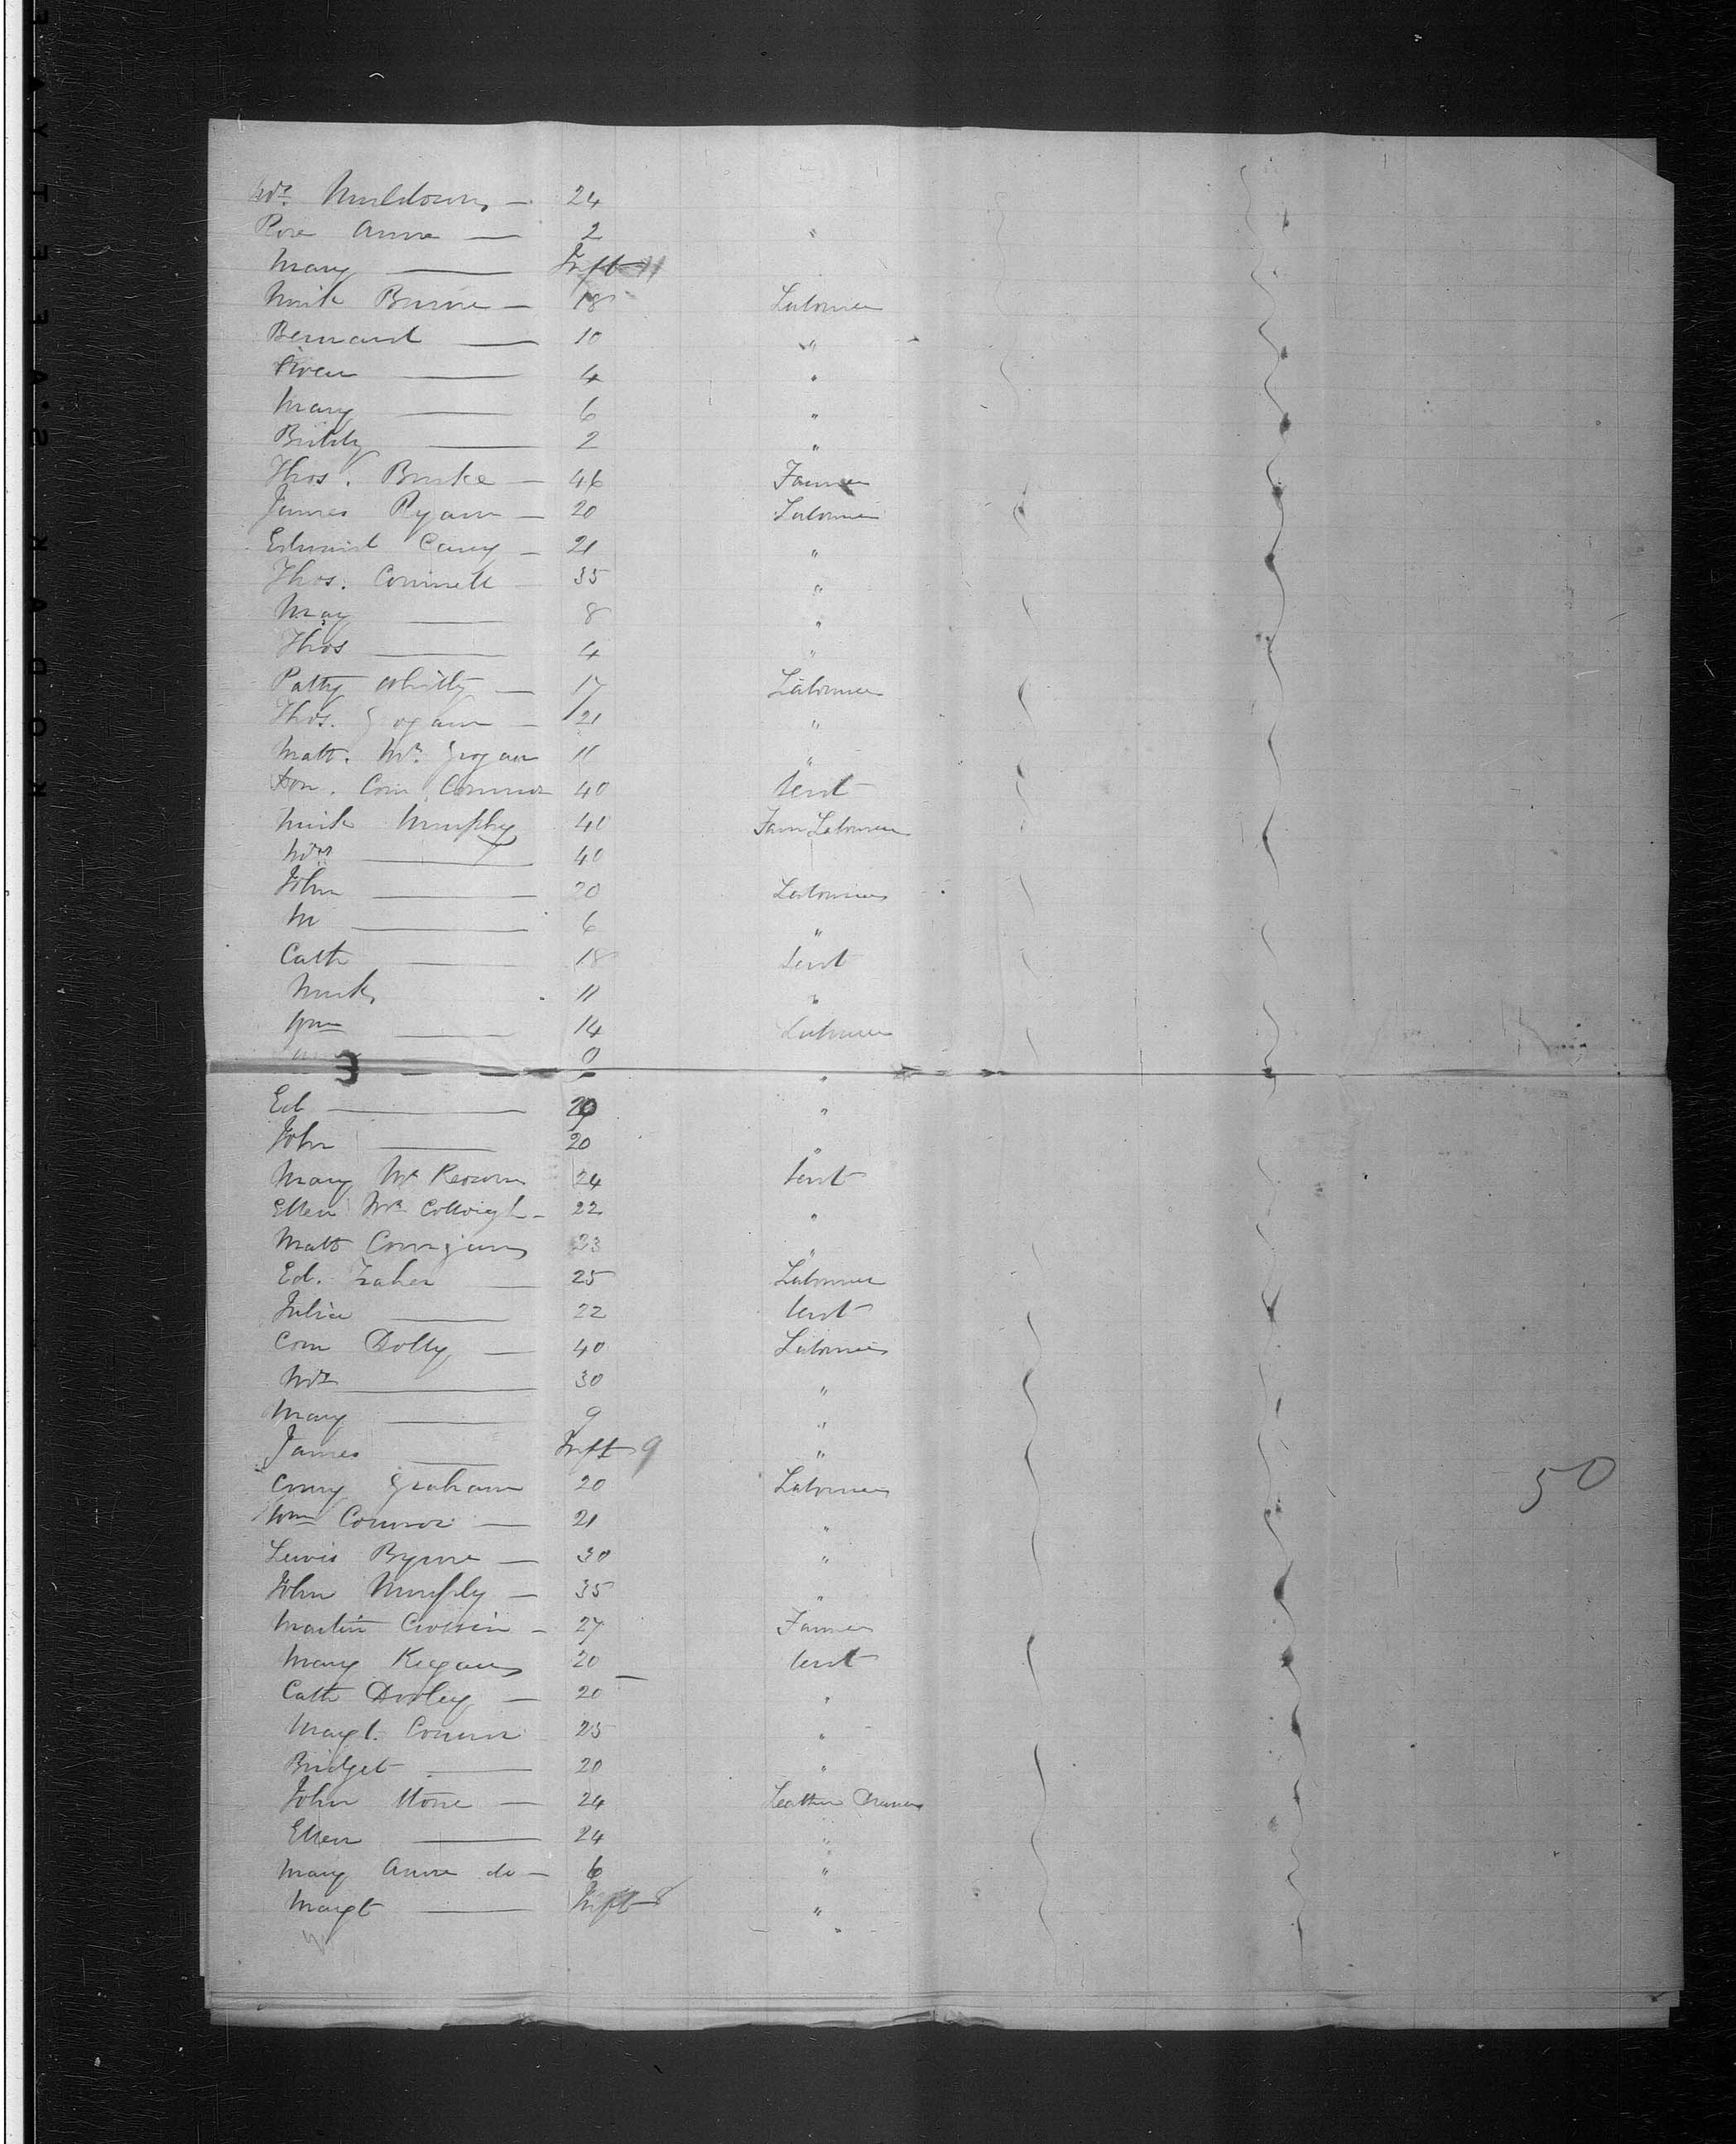 Mrs. Muldown — 24
Rose Anne — 2 "
Mary — Inft 11
Mick Burne — 18 Labourer
Bernard — 10 "
Owen — 4 "
Mary — 6 "
Biddy — 2 "
Thos. Burke — 46 Farmer
James Ryan — 20 Labourer
Edward Carey — 21 "
Thos. Connell — 35 "
Mary — 8 "
Thos — 4 "
Patty Whitty — 17 Labourer
Thos. Grogan — 21 "
Matt. Mc Grogan 11 "
Con. Connor 40 Servt
Mick Murphy 40 Farm Labourer
Mrs — 40
John — 20 Labourer
M — 6 "
Cath — 18 Servt
Mick 11 "
Wm — 14 Labourer
"
Ed — 20 "
John — 20 "
Mary Mc Keown 24 Servt
Ellen Mc — 22 "
Matt Corrigan 23 "
Ed. Fraher — 25 Labourer
Julia — 22 Servt
Corn Dolly — 40 Labourer
Mrs — 30 "
Mary — 9 "
James — Inft 9 "
Graham 20 Labourer
Wm Connor — 21 "
Lewis Byrne — 30 "
John Murphy — 35 "
Martin Crossin — 27 Farmer
Mary Kegan 20 Servt
Cath Dooley — 20 "
Margt. Connor 25 "
Bridget — 20 "
John Stone — 24 Leather Dresser
Ellen — 24 "
Mary Anne do — 6 "
Margt — Inft 8 "
50